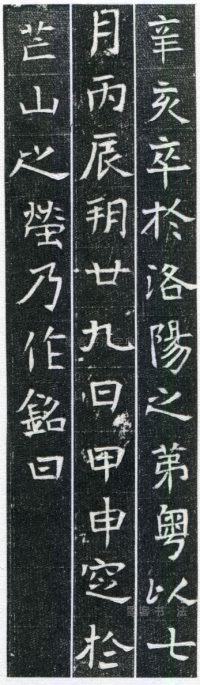 辛亥卒於洛陽之第粵以七
月丙辰朔廿九日甲申窆於
芒山之塋乃作銘曰